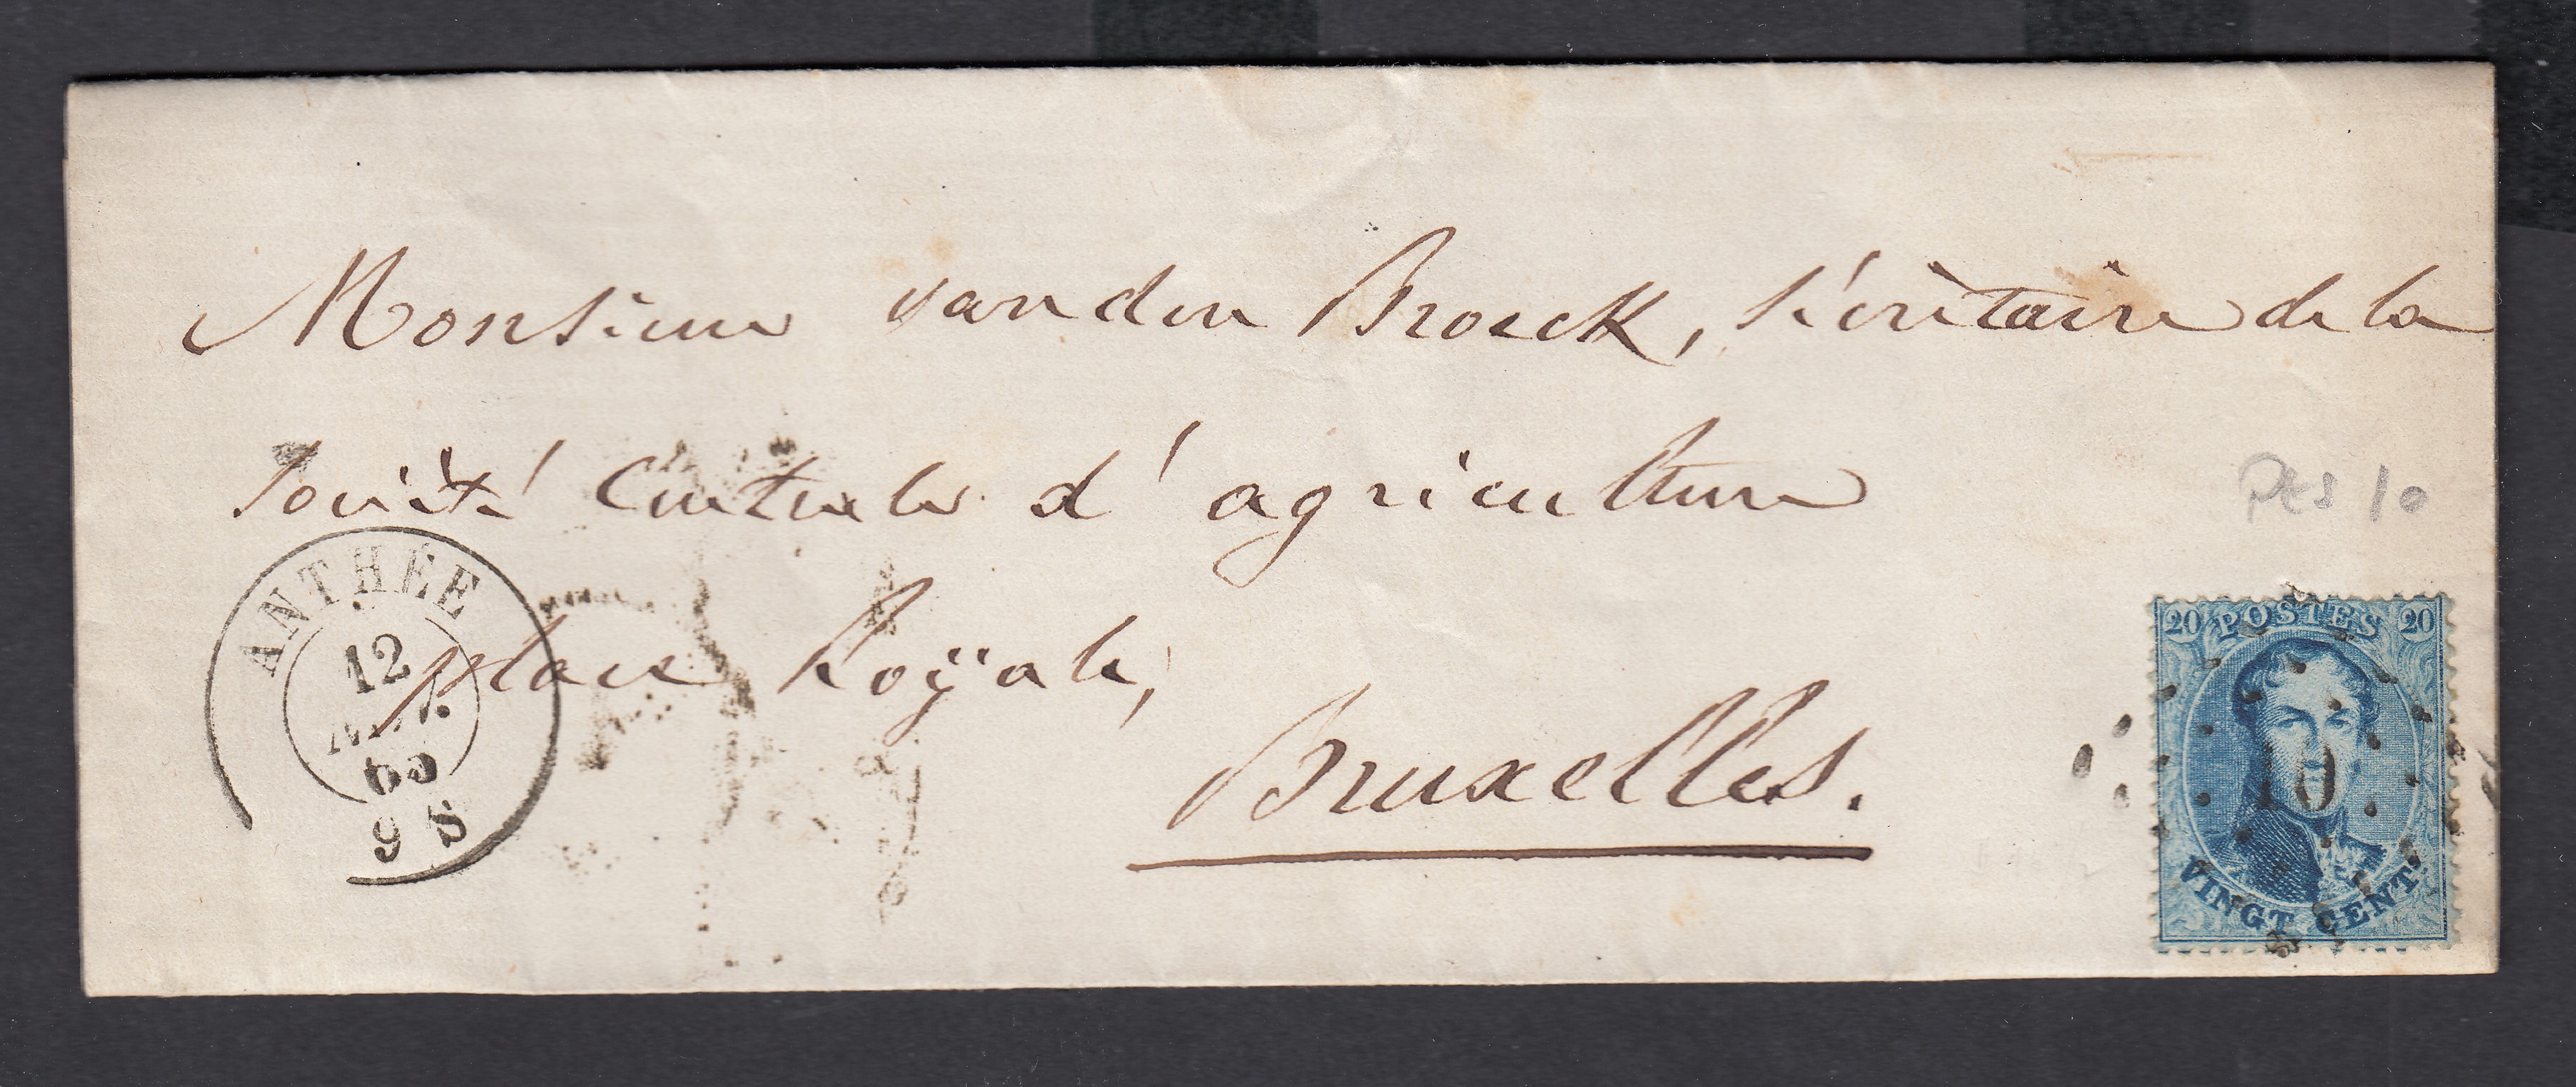 Monsieur vanden Broeck, Sécrètaire de la
Société Centrale d'agriculture
place Royale,
Bruxelles.
ANTHÉE
12
65
9 S
Pts 10
20 POSTES 20
10
VINGT CENT.